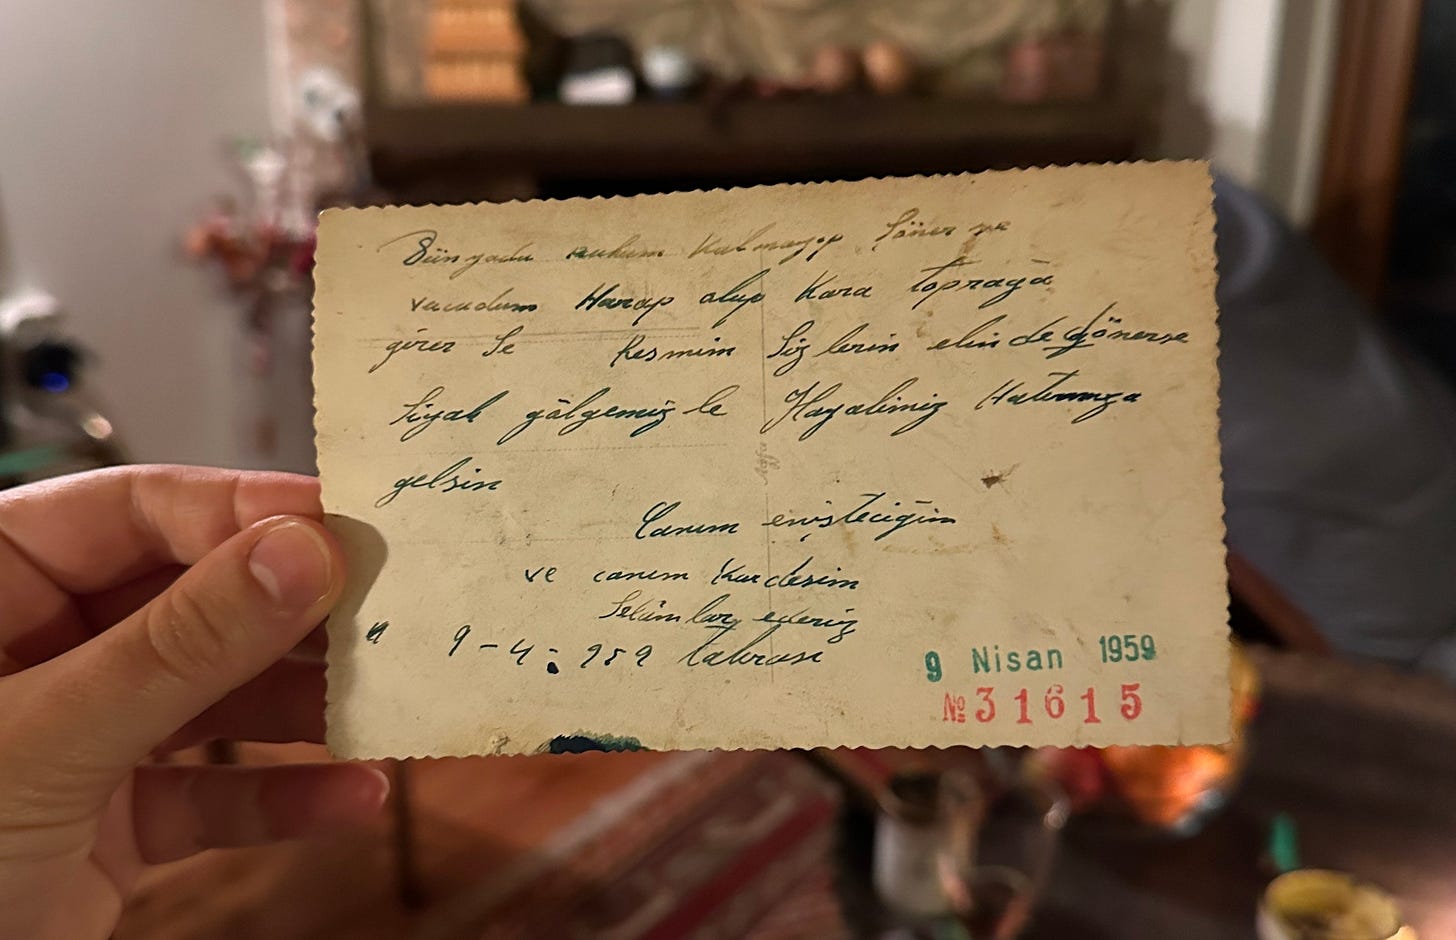 Dünyada ruhum Kalmayıp Söner ve
vucudum Harap olup Kara toprağa
girer Se Resmim Sizlerin elinde dönerse
Siyah gölgemizle Hayalimiz Hatırınıza
gelsin
Agfa
Canım enişteciğim
ve canım Kardeşim
Selâmlar ederiz
9-4-959 hatırası
9 Nisan 1959
№ 31615